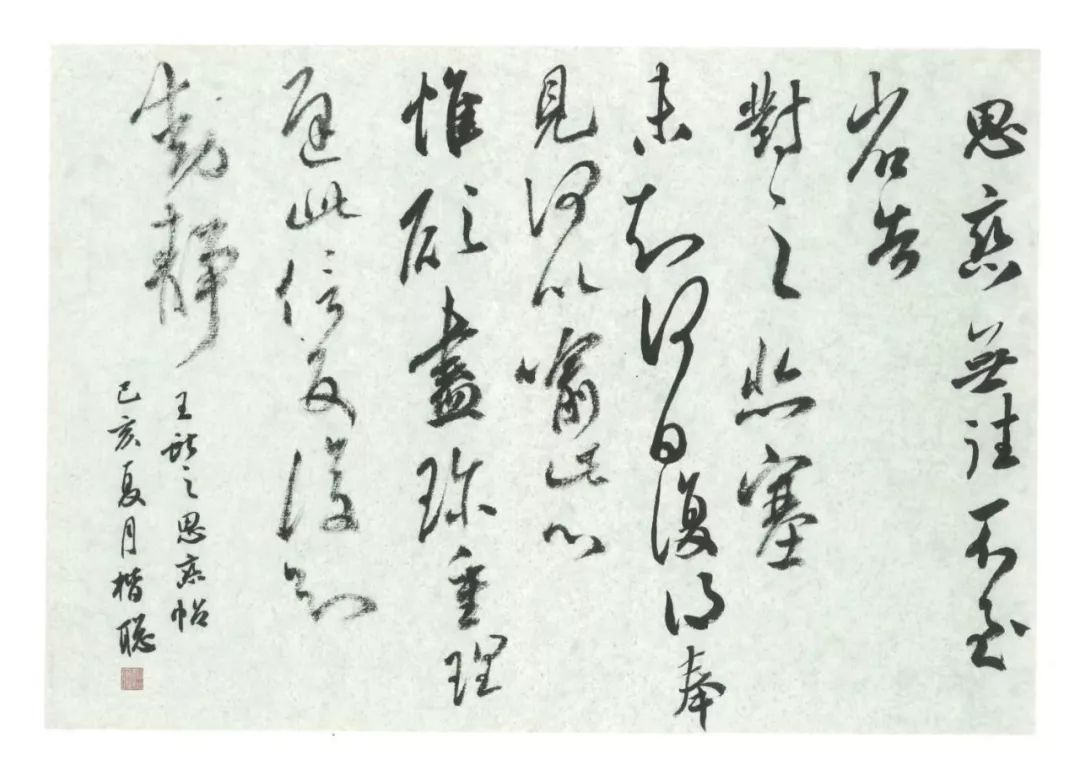 思戀無往不至
省告
對之悲塞
未知何日復得奉
見何以喻此心
惟願盡珍重理
遲此信反復知
動靜
王獻之思戀帖
己亥夏月楷聰